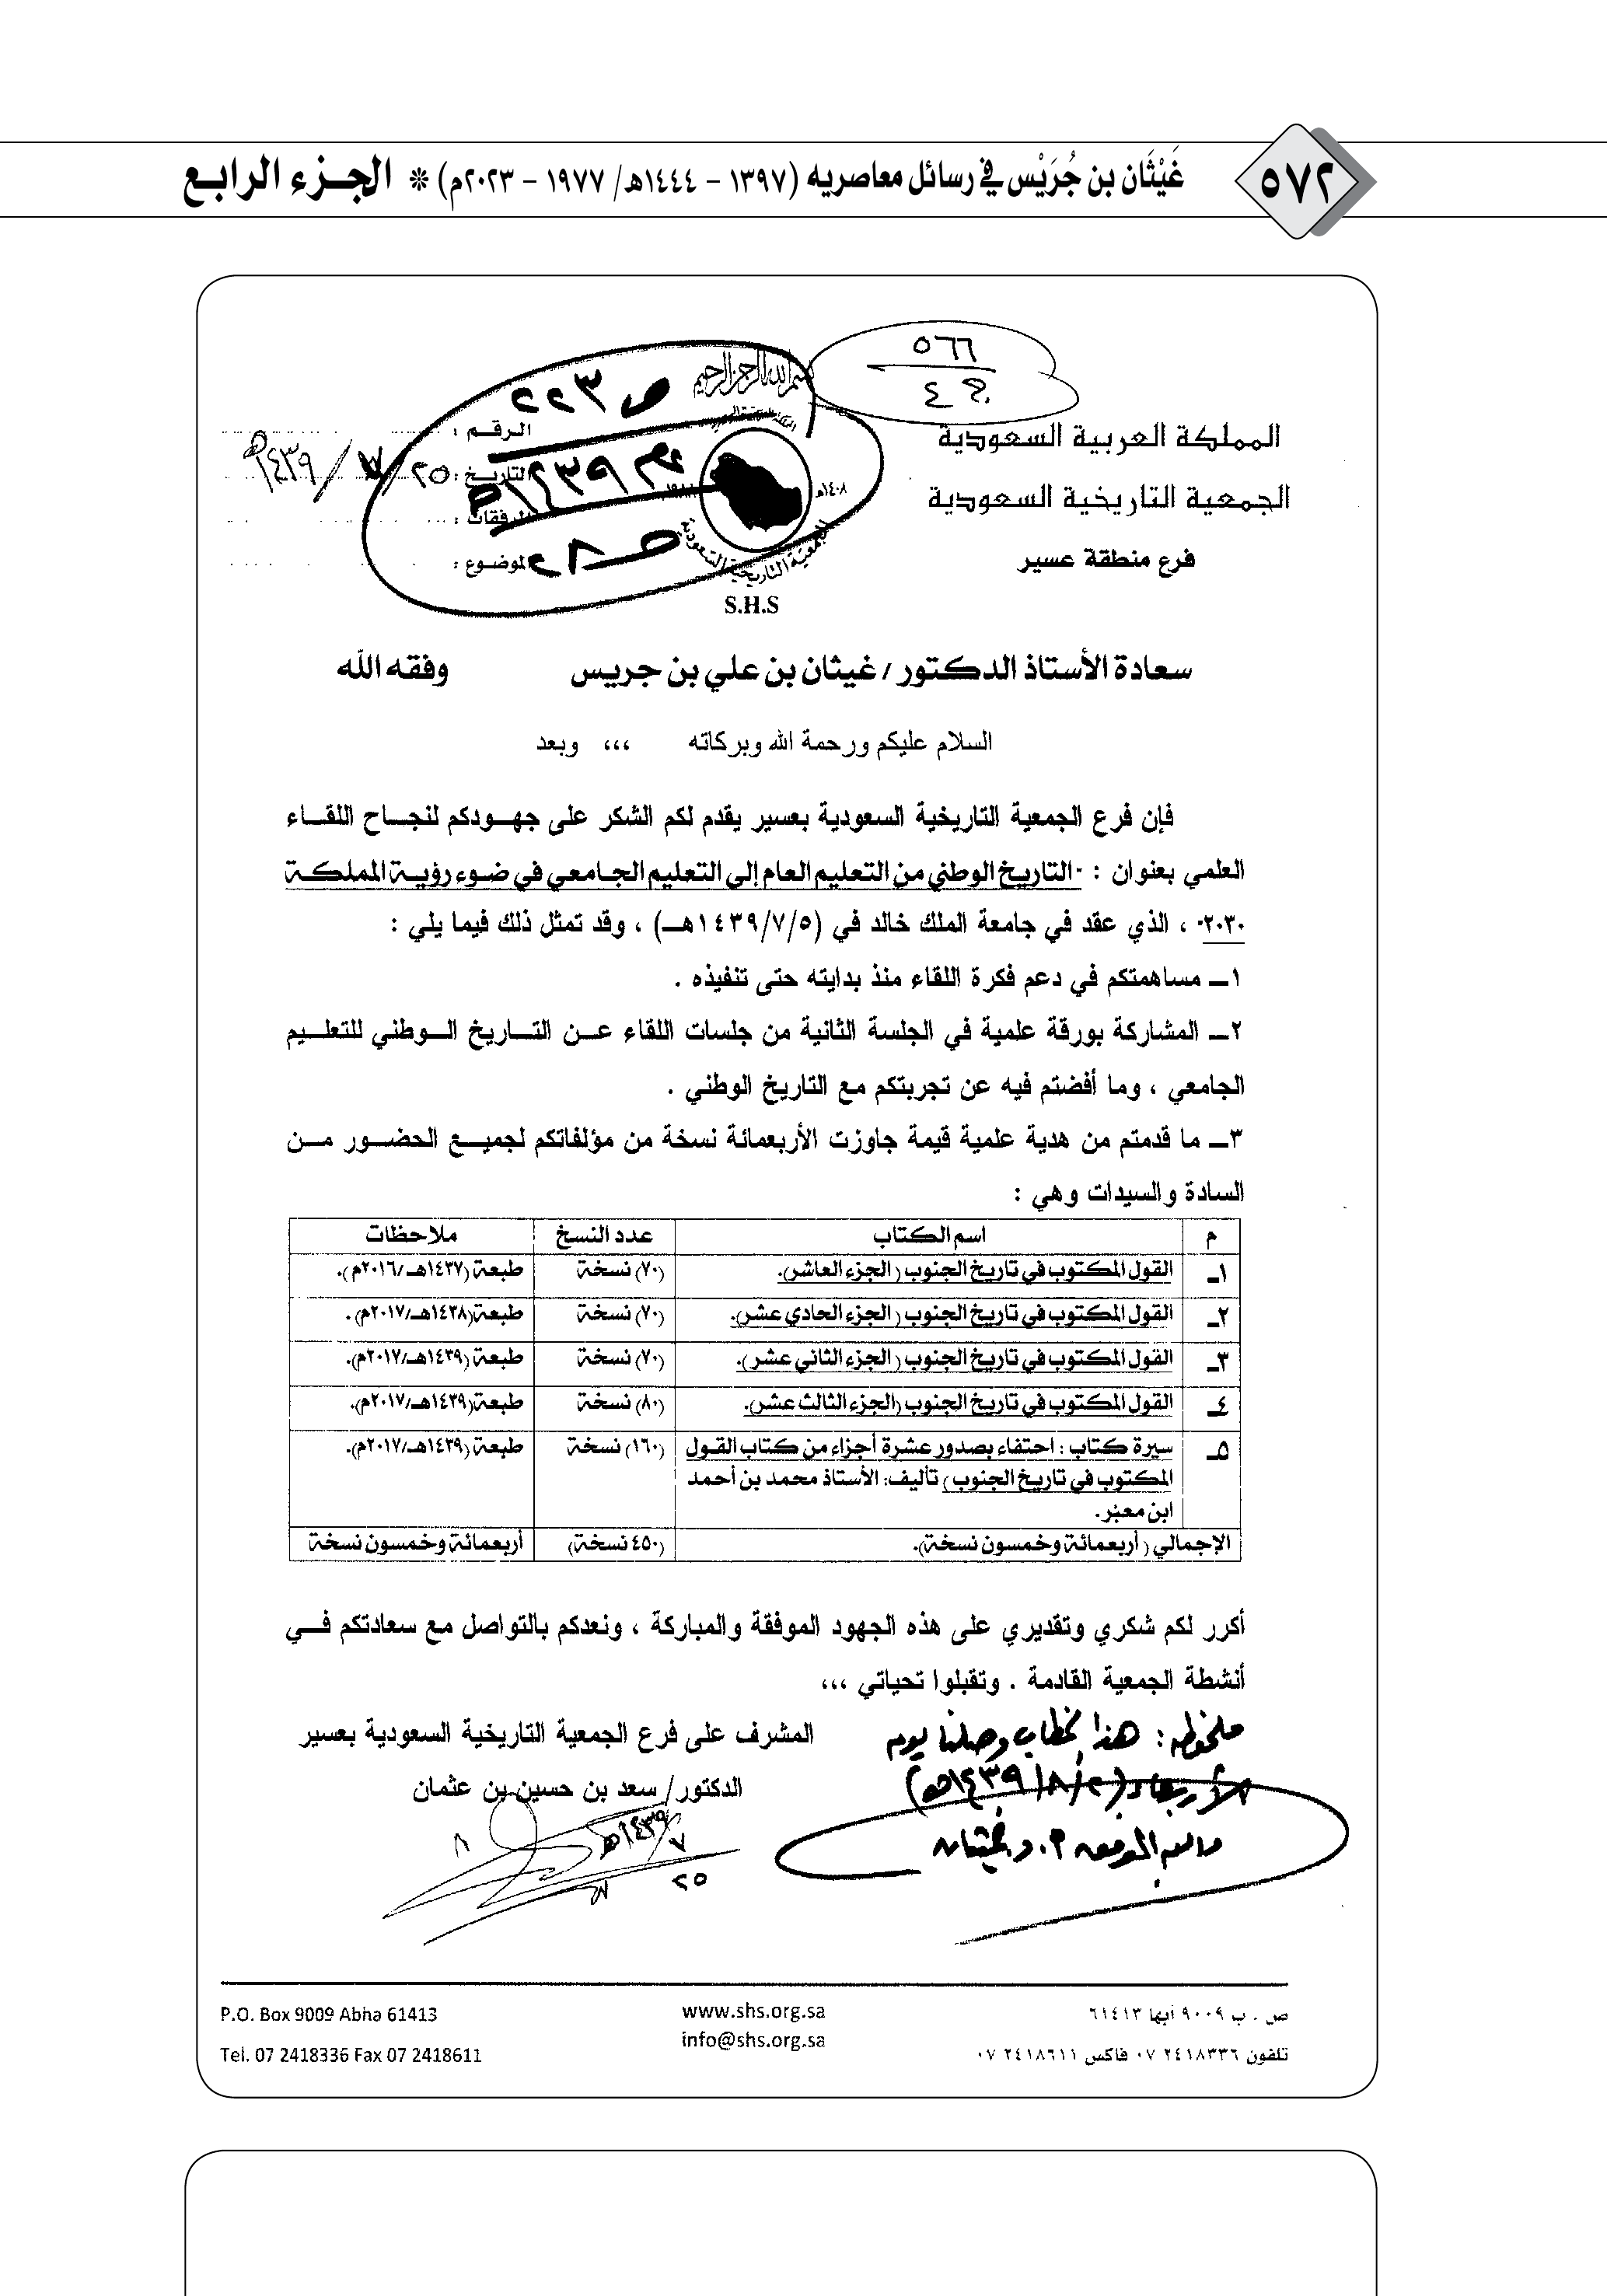 ٥٧٢
غَيْثَان بن جُرَيْس في رسائل معاصريه (١٣٩٧ - ١٤٤٤هـ/ ١٩٧٧ - ٢٠٢٣م) * الجزء الرابع
٥٦٦
بسم الله الرحمن الرحيم
المملكة العربية السعودية
الجمعية التاريخية السعودية
فرع منطقة عسير
١٤٠٨هـ
الجمعية التاريخية السعودية
S.H.S
الرقم :
التاريخ : ٢٥ / ٧ / ١٤٣٩هـ
المرفقات :
الموضوع :
سعادة الأستاذ الدكتور / غيثان بن علي بن جريس وفقه الله
السلام عليكم ورحمة الله وبركاته ،،، وبعد
فإن فرع الجمعية التاريخية السعودية بعسير يقدم لكم الشكر على جهودكم لنجاح اللقاء
العلمي بعنوان : "التاريخ الوطني من التعليم العام إلى التعليم الجامعي في ضوء رؤية المملكة
٢٠٣٠" ، الذي عقد في جامعة الملك خالد في (١٤٣٩/٧/٥هـ) ، وقد تمثل ذلك فيما يلي :
١ـ مساهمتكم في دعم فكرة اللقاء منذ بدايته حتى تنفيذه .
٢ـ المشاركة بورقة علمية في الجلسة الثانية من جلسات اللقاء عن التاريخ الوطني للتعليم
الجامعي ، وما أفضتم فيه عن تجربتكم مع التاريخ الوطني .
٣ـ ما قدمتم من هدية علمية قيمة جاوزت الأربعمائة نسخة من مؤلفاتكم لجميع الحضور من
السادة والسيدات وهي :
م اسم الكتاب عدد النسخ ملاحظات
١ـ القول المكتوب في تاريخ الجنوب ( الجزء العاشر). (٧٠) نسخة طبعة (١٤٣٧هـ/٢٠١٦م).
٢ـ القول المكتوب في تاريخ الجنوب ( الجزء الحادي عشر). (٧٠) نسخة طبعة(١٤٣٨هـ/٢٠١٧م) .
٣ـ القول المكتوب في تاريخ الجنوب ( الجزء الثاني عشر ). (٧٠) نسخة طبعة (١٤٣٩هـ/٢٠١٧م).
٤ـ القول المكتوب في تاريخ الجنوب (الجزء الثالث عشر). (٨٠) نسخة طبعة(١٤٣٩هـ/٢٠١٧م).
٥ـ سيرة كتاب : احتفاء بصدور عشرة أجزاء من كتاب القول (١٦٠) نسخة طبعة (١٤٣٩هـ/٢٠١٧م).
المكتوب في تاريخ الجنوب ) تأليف: الأستاذ محمد بن أحمد
ابن معبر.
الإجمالي ( أربعمائة وخمسون نسخة). (٤٥٠ نسخة) أربعمائة وخمسون نسخة
أكرر لكم شكري وتقديري على هذه الجهود الموفقة والمباركة ، ونعدكم بالتواصل مع سعادتكم في
أنشطة الجمعية القادمة . وتقبلوا تحياتي ،،،
المشرف على فرع الجمعية التاريخية السعودية بعسير
الدكتور/ سعد بن حسين بن عثمان
١٤٣٩هـ
٧
٢٥
ملحوظة : هذا الخطاب وصلنا يوم
الأربعاء (٢/٨/١٤٣٩هـ)
والله الموفق أ.د. غيثان
ص . ب ٩٠٠٩ أبها ٦١٤١٣
تلفون ٢٤١٨٣٣٦ ٠٧ فاكس ٢٤١٨٦١١ ٠٧
www.shs.org.sa
info@shs.org.sa
P.O. Box 9009 Abha 61413
Tel. 07 2418336 Fax 07 2418611